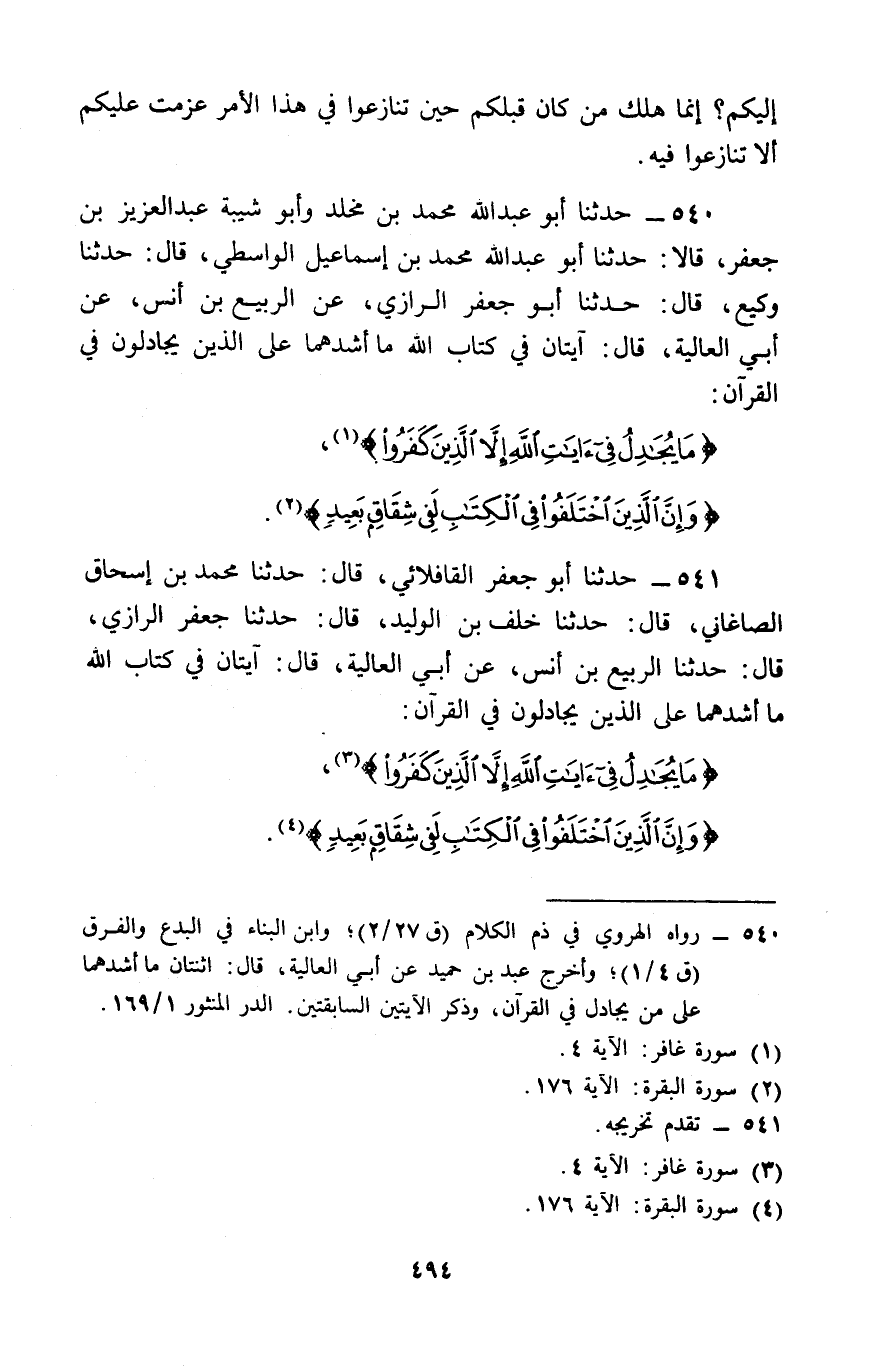 إليكم؟ إنما هلك من كان قبلكم حين تنازعوا في هذا الأمر عزمت عليكم
ألا تنازعوا فيه.
٥٤٠ ـ حدثنا أبو عبدالله محمد بن مخلد وأبو شيبة عبدالعزيز بن
جعفر، قالا: حدثنا أبو عبدالله محمد بن إسماعيل الواسطي، قال: حدثنا
وكيع، قال: حدثنا أبو جعفر الرازي، عن الربيع بن أنس، عن
أبي العالية، قال: آيتان في كتاب الله ما أشدهما على الذين يجادلون في
القرآن:
﴿مَا يُجَٰدِلُ فِىٓ ءَايَٰتِ ٱللَّهِ إِلَّا ٱلَّذِينَ كَفَرُواْ﴾(١)،
﴿وَإِنَّ ٱلَّذِينَ ٱخْتَلَفُواْ فِى ٱلْكِتَٰبِ لَفِى شِقَاقِۭ بَعِيدٍ﴾(٢).
٥٤١ ـ حدثنا أبو جعفر القافلائي، قال: حدثنا محمد بن إسحاق
الصاغاني، قال: حدثنا خلف بن الوليد، قال: حدثنا جعفر الرازي،
قال: حدثنا الربيع بن أنس، عن أبي العالية، قال: آيتان في كتاب الله
ما أشدهما على الذين يجادلون في القرآن:
﴿مَا يُجَٰدِلُ فِىٓ ءَايَٰتِ ٱللَّهِ إِلَّا ٱلَّذِينَ كَفَرُواْ﴾(٣)،
﴿وَإِنَّ ٱلَّذِينَ ٱخْتَلَفُواْ فِى ٱلْكِتَٰبِ لَفِى شِقَاقِۭ بَعِيدٍ﴾(٤).
٥٤٠ ـ رواه الهروي في ذم الكلام (ق ٢/٢٧)؛ وابن البناء في البدع والفرق
(ق ١/٤)؛ وأخرج عبد بن حميد عن أبي العالية، قال: اثنتان ما أشدهما
على من يجادل في القرآن، وذكر الآيتين السابقتين. الدر المنثور ١٦٩/١.
(١) سورة غافر: الآية ٤.
(٢) سورة البقرة: الآية ١٧٦.
٥٤١ ـ تقدم تخريجه.
(٣) سورة غافر: الآية ٤.
(٤) سورة البقرة: الآية ١٧٦.
٤٩٤